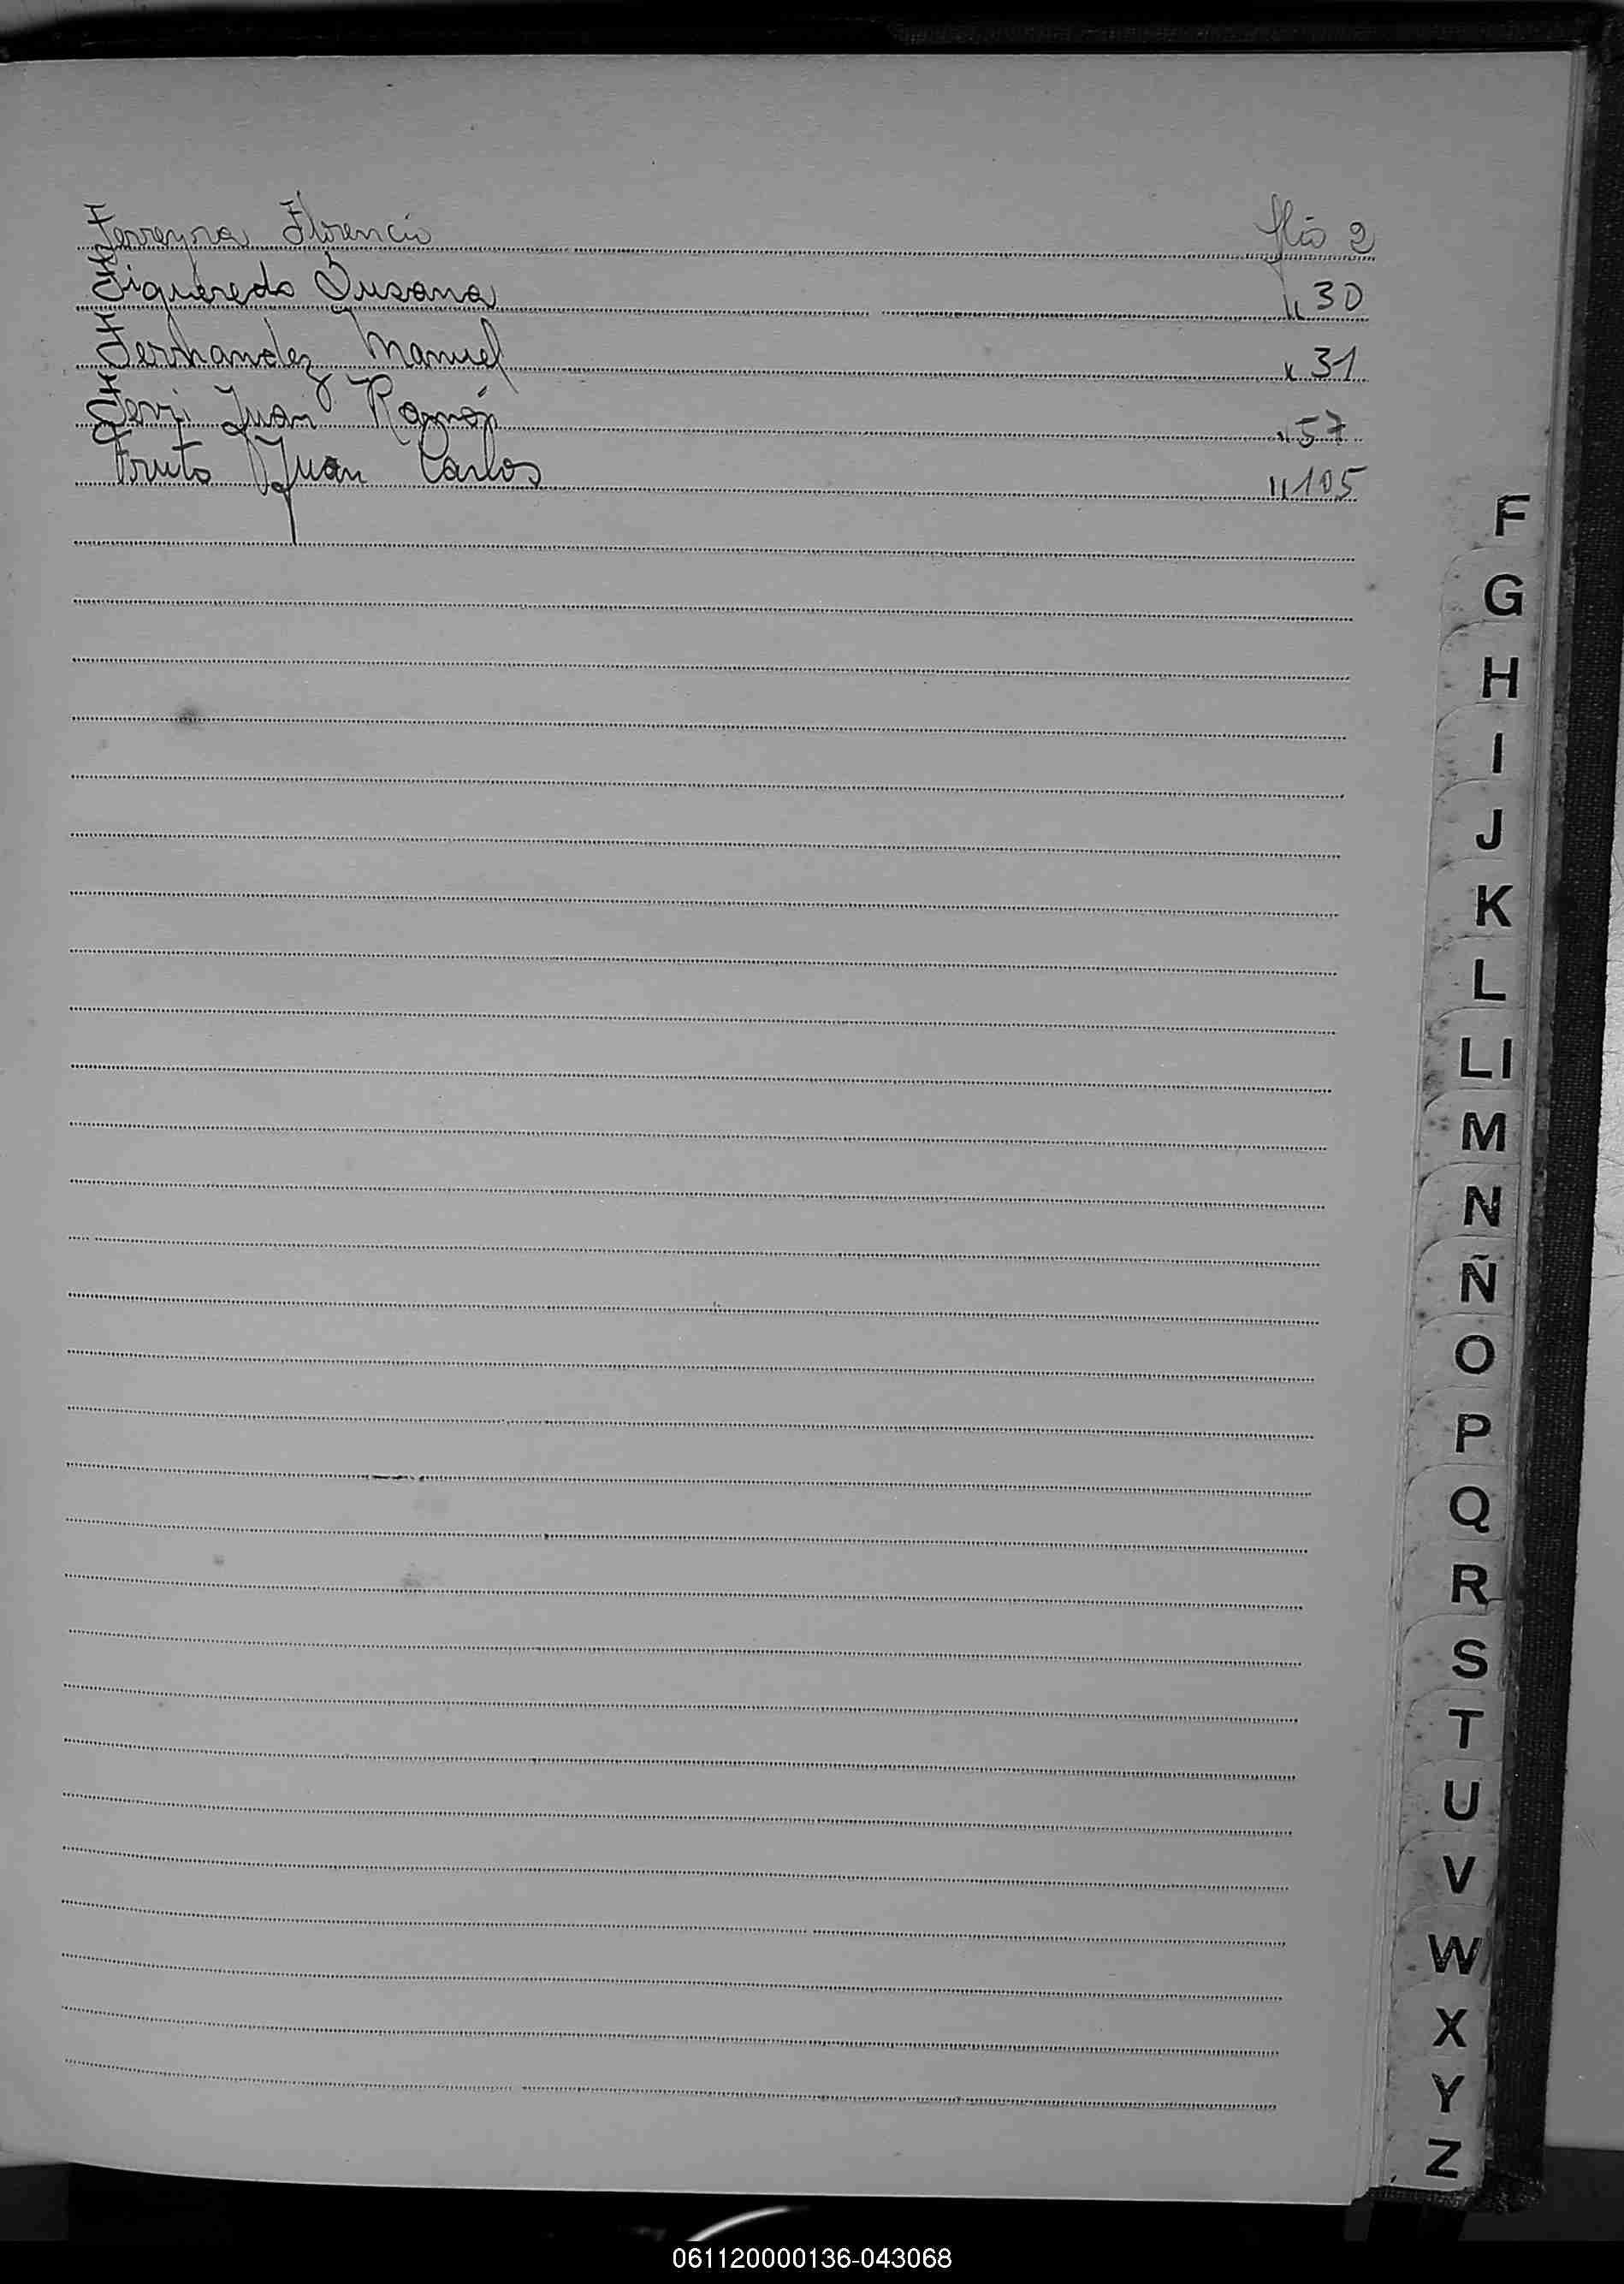 Ferreyra Florencio flio 2
Figueredo Susana " 30
Fernandez Manuel " 31
Juan Ramón " 57
Fruto Juan Carlos " 105
F
G
H
I
J
K
L
Ll
M
N
Ñ
O
P
Q
R
S
T
U
V
W
X
Y
Z
061120000136-043068